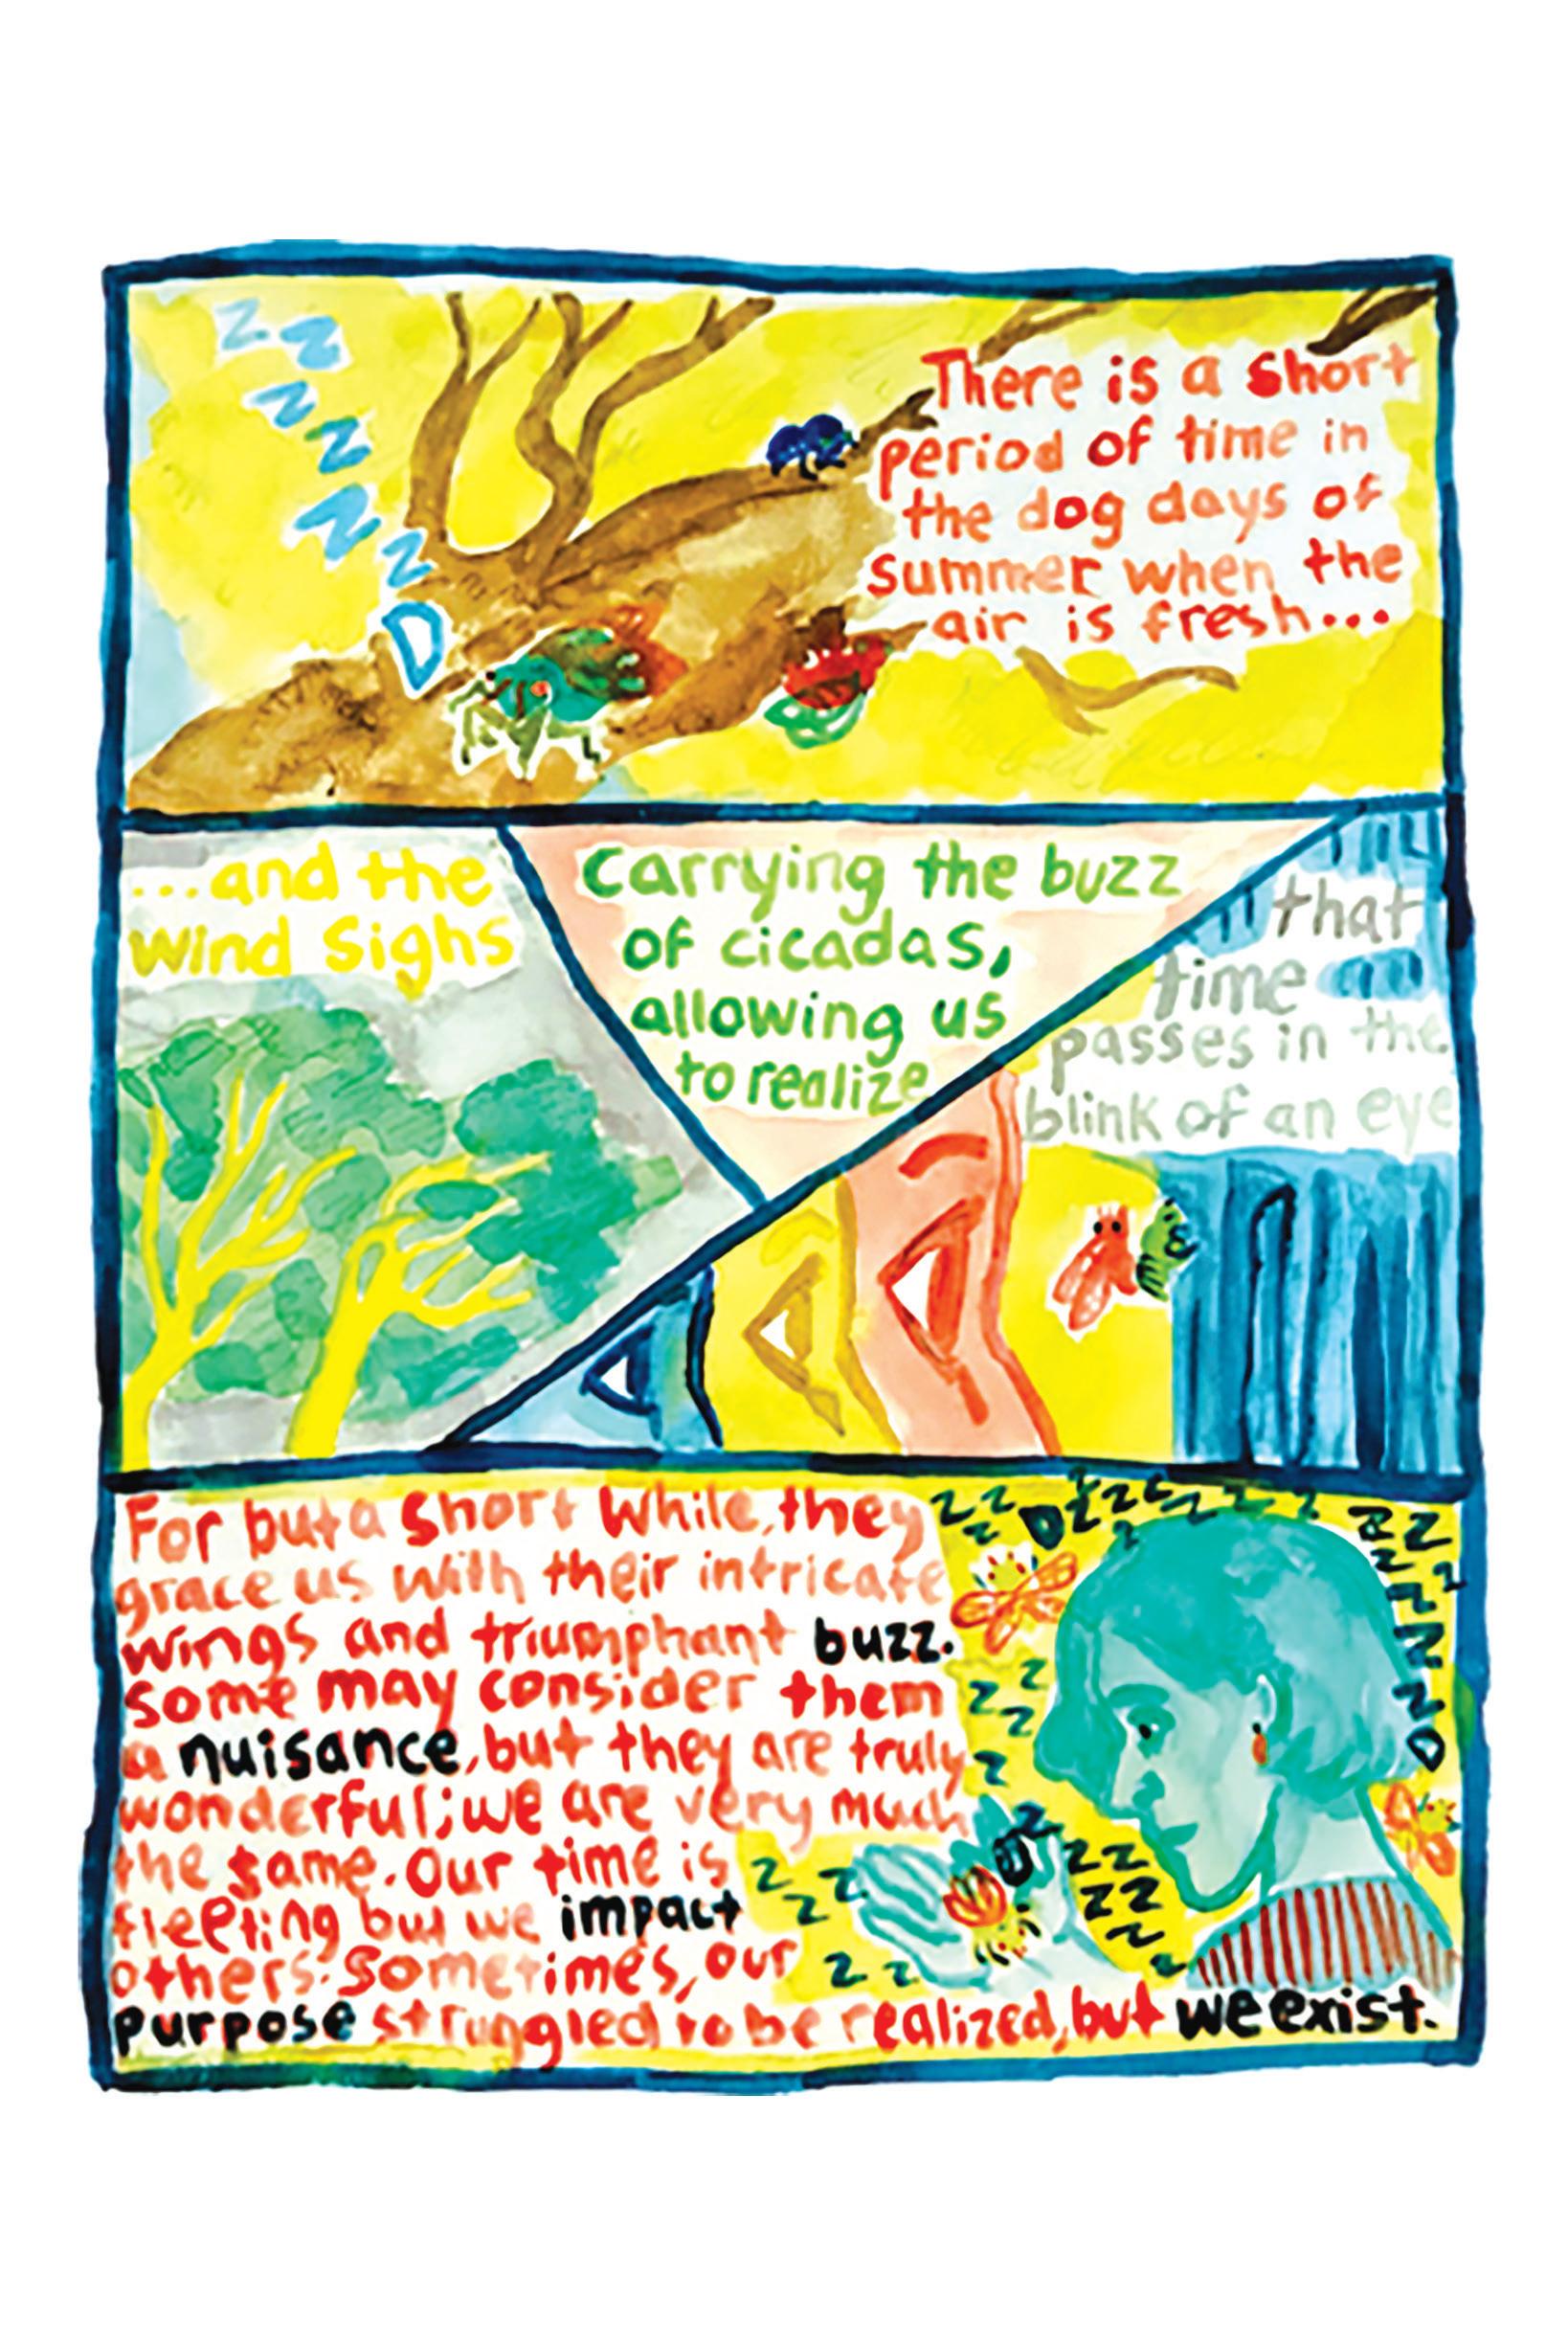 ZZZZZZD
There is a short
period of time in
the dog days of
summer when the
air is fresh...
...and the
wind sighs
Carrying the buzz
of cicadas,
allowing us
to realize
that
time
passes in the
blink of an eye
For but a short while, they
grace us with their intricate
wings and triumphant buzz.
some may consider them
a nuisance, but they are truly
wonderful; we are very much
the same. Our time is
fleeting but we impact
others. Sometimes, our
purpose struggled to be realized, but we exist.